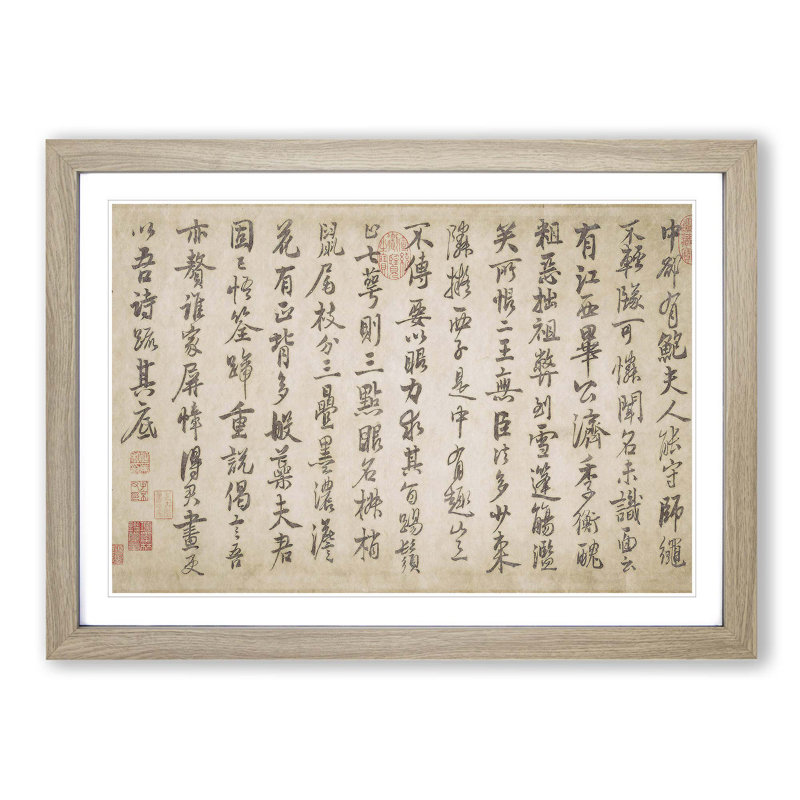 中卻有鮑夫人能守師繩
不輕墜可憐聞名未識面云
有江西畢公濟季衡醜
粗惡拙祖弊到雪蓬觴濫
矣所恨二王無臣法多少東
隣擬西子是中有趣豈
不傳要以眼力求其旨踢鬚
止七萼則三點眼名椒梢
鼠尾枝分三疊墨濃澹
花有正背多般蘂夫君
固已悟筌蹄重說偈言吾
亦贅誰家屏幛得君畫更
以吾詩疏其底